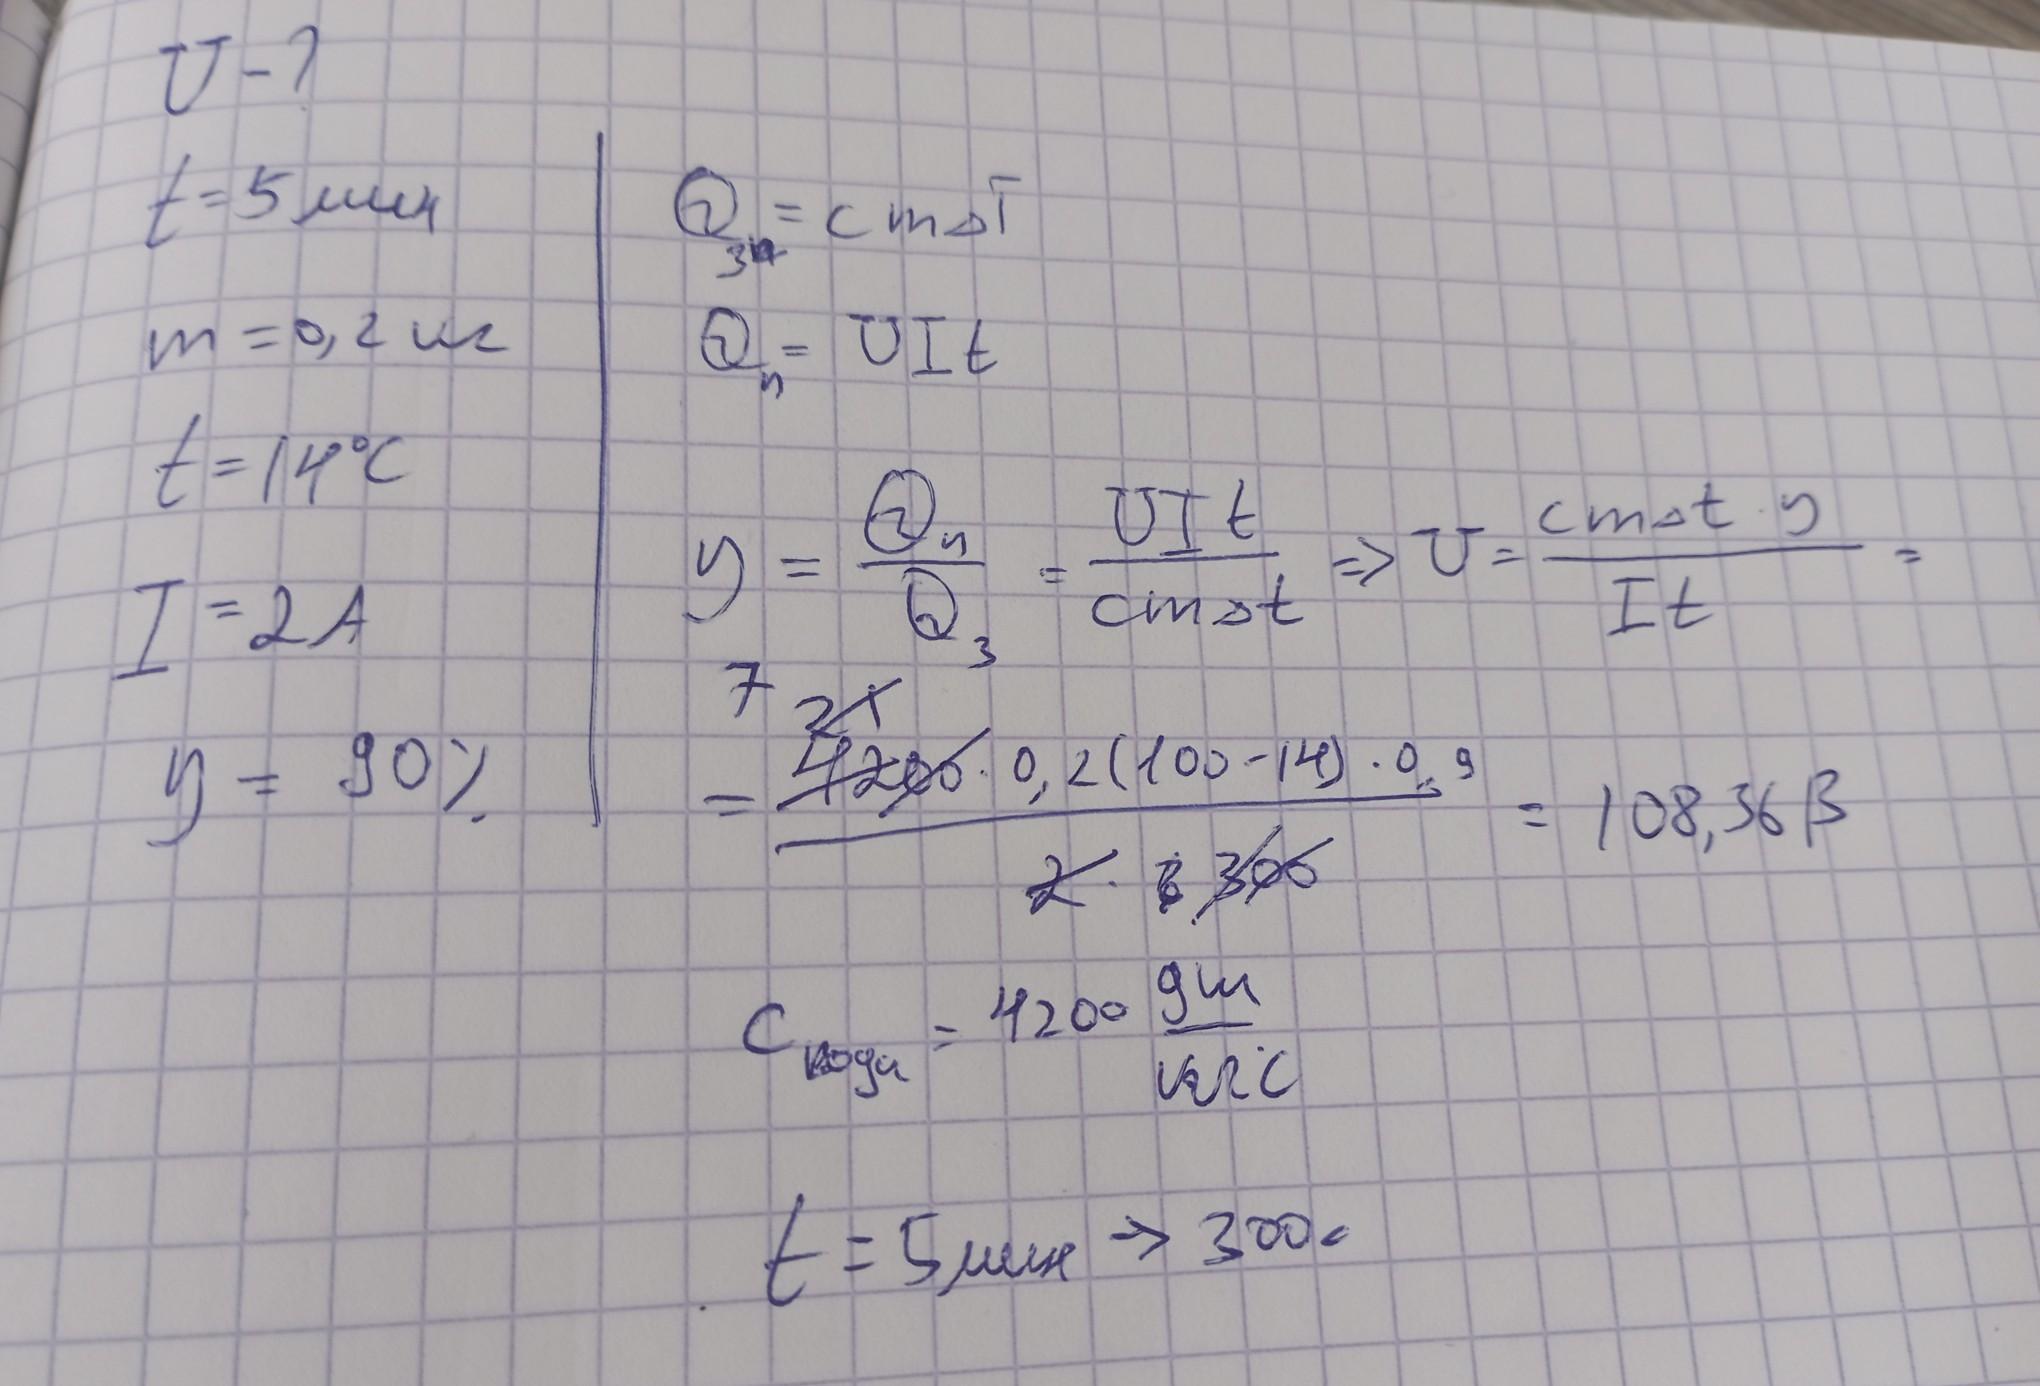 U - ?
t = 5 мин
m = 0,2 кг
t = 14°C
I = 2 A
η = 90%
Qз = cmΔT
Qп = UIt
η = Qп/Qз = UIt/cmΔt => U = cmΔt·η/It =
7 21
= 4200·0,2(100-14)·0,9 / 2·300 = 108,36 В
Cвода = 4200 дж/кг°C
t = 5 мин → 300с